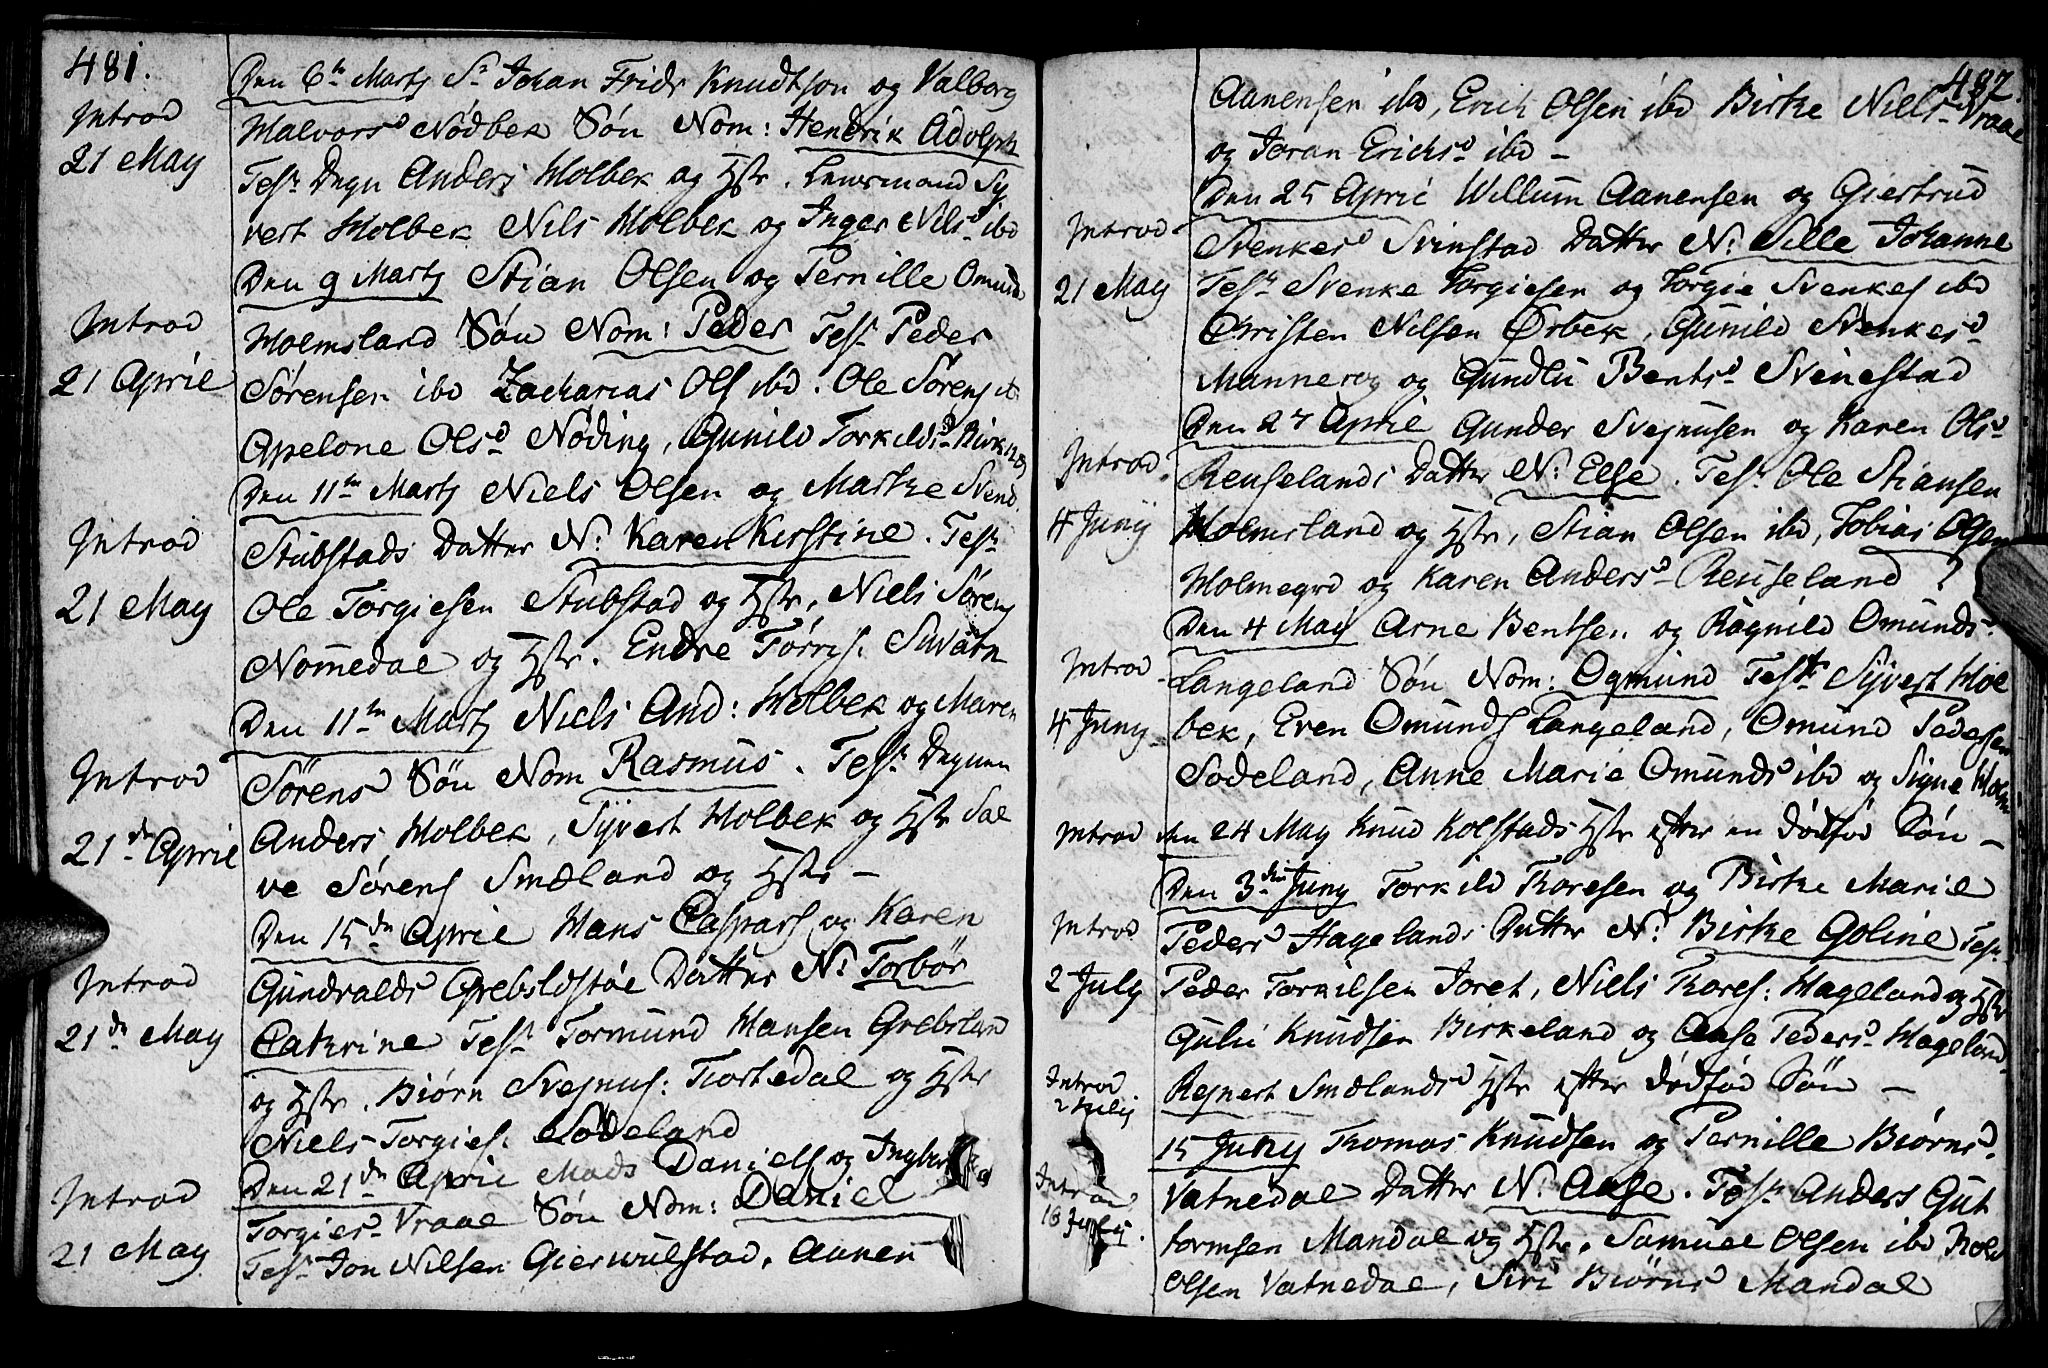 481.
Introd
21 May
Den 6te Martz Sr Johan Fridr Knudtson og Valborg
Halvorsd Nødbek Søn Nom: Hendrik Adolph
Test Degn Anders Holbek og Hstr. Lensmand Sy
vert Holbek Nils Holbek og Inger Nilsd ibd
Introd
21 April
Den 9 Martz Stian Olsen og Pernille Omunds
Holmsland Søn Nom: Peder Test Peder
Sørensen ibd Zacharias Ols ibd. Ole Sørens ib
Apelone Olsd Nøding, Gunild Torkilds
Introd
21 May
Den 11te Martz Niels Olsen og Marthe Svend
Stubstads Datter N: Karen Kirstine. Test
Ole Torgiesen Stubstad og Hstr, Niels Sørens
Nomedal og Hstr. Endre Tørris.
Introd
21de April
Den 11te Martz Niels And: Holbek og Maren
Sørensd Søn Nom Rasmus. Test Degnen
Anders Holbek, Syvert Holbek og Hstr Sal
ve Sørens Smæland og Hstr –
Introd
21de May
Den 15de April Hans Caspars og Karen
Gundvalds Grebsldstøe Datter N: Torbør
Cathrine Test Tormund Hansen Grebslan
og Hstr. Biørn Svejnus: Tortedal og Hstr
Niels Torgies: Sødeland
Introd
21 May
Den 21de April Mads Daniels og Ingbor
Torgiersd Vraae Søn Nom: Daniel
Test Jon Nilsen Gierwulstad, Aanen
482.
Aanensen ibd, Erich Olsen ibd Birthe Nielsd Vraae
og Joran Erichsd ibd –
Introd
21 May
Den 25 April Willum Aanensen og Giertrud
Svenkesd Svinstad Datter N: Sille Johanne
Test Svenke Torgiesen og Torgie Svenkes ibd
Christen Nilsen Ørbek, Gunild Svenkesd
Mannerog og Gundlu Bentsd Svinestad
Introd
4 Junj
Den 27 April Gunder Svejnusen og Karen Olsd
Reuselands Datter N: Else. Test Ole Stiansen
Holmsland og Hstr, Stian Olsen ibd, Tobias Olsen
Holmegrd og Karen Andersd Reuseland
Introd
4 Juny
Den 4 May Arne Bentsen og Ragnild Omundsd
Langeland Søn Nom: Ogmund Test Syvert Hol
bek, Even Omunds Langeland, Omund Pedersen
Sodeland, Anne Marie Omundsd ibd og Signe Holm
Introd den 24 May Knud Kolstads Hstr efter en dødfød Søn –
Introd
2 July
Den 3die Juny Torkild Thoresen og Birthe Marie
Pedersd Hagelands Datter N: Birthe Goline Test
Peder Torkilsen Joret, Niels Thores: Hageland og Hstr
Guli Knudsen Birkeland og Aase Pedersd Hageland
Introd
2 Julij
Rejnert Smælands Hstr efter dødfød Søn –
Introd
16 July.
15 Juny Thomas Knudsen og Pernille Biørnsd
Vatnedal Datter N: Aase. Test Anders Gut
tormsen Mandal og Hstr, Samuel Olsen ibd
Olsen Vatnedal, Siri Biørnsd Mandal